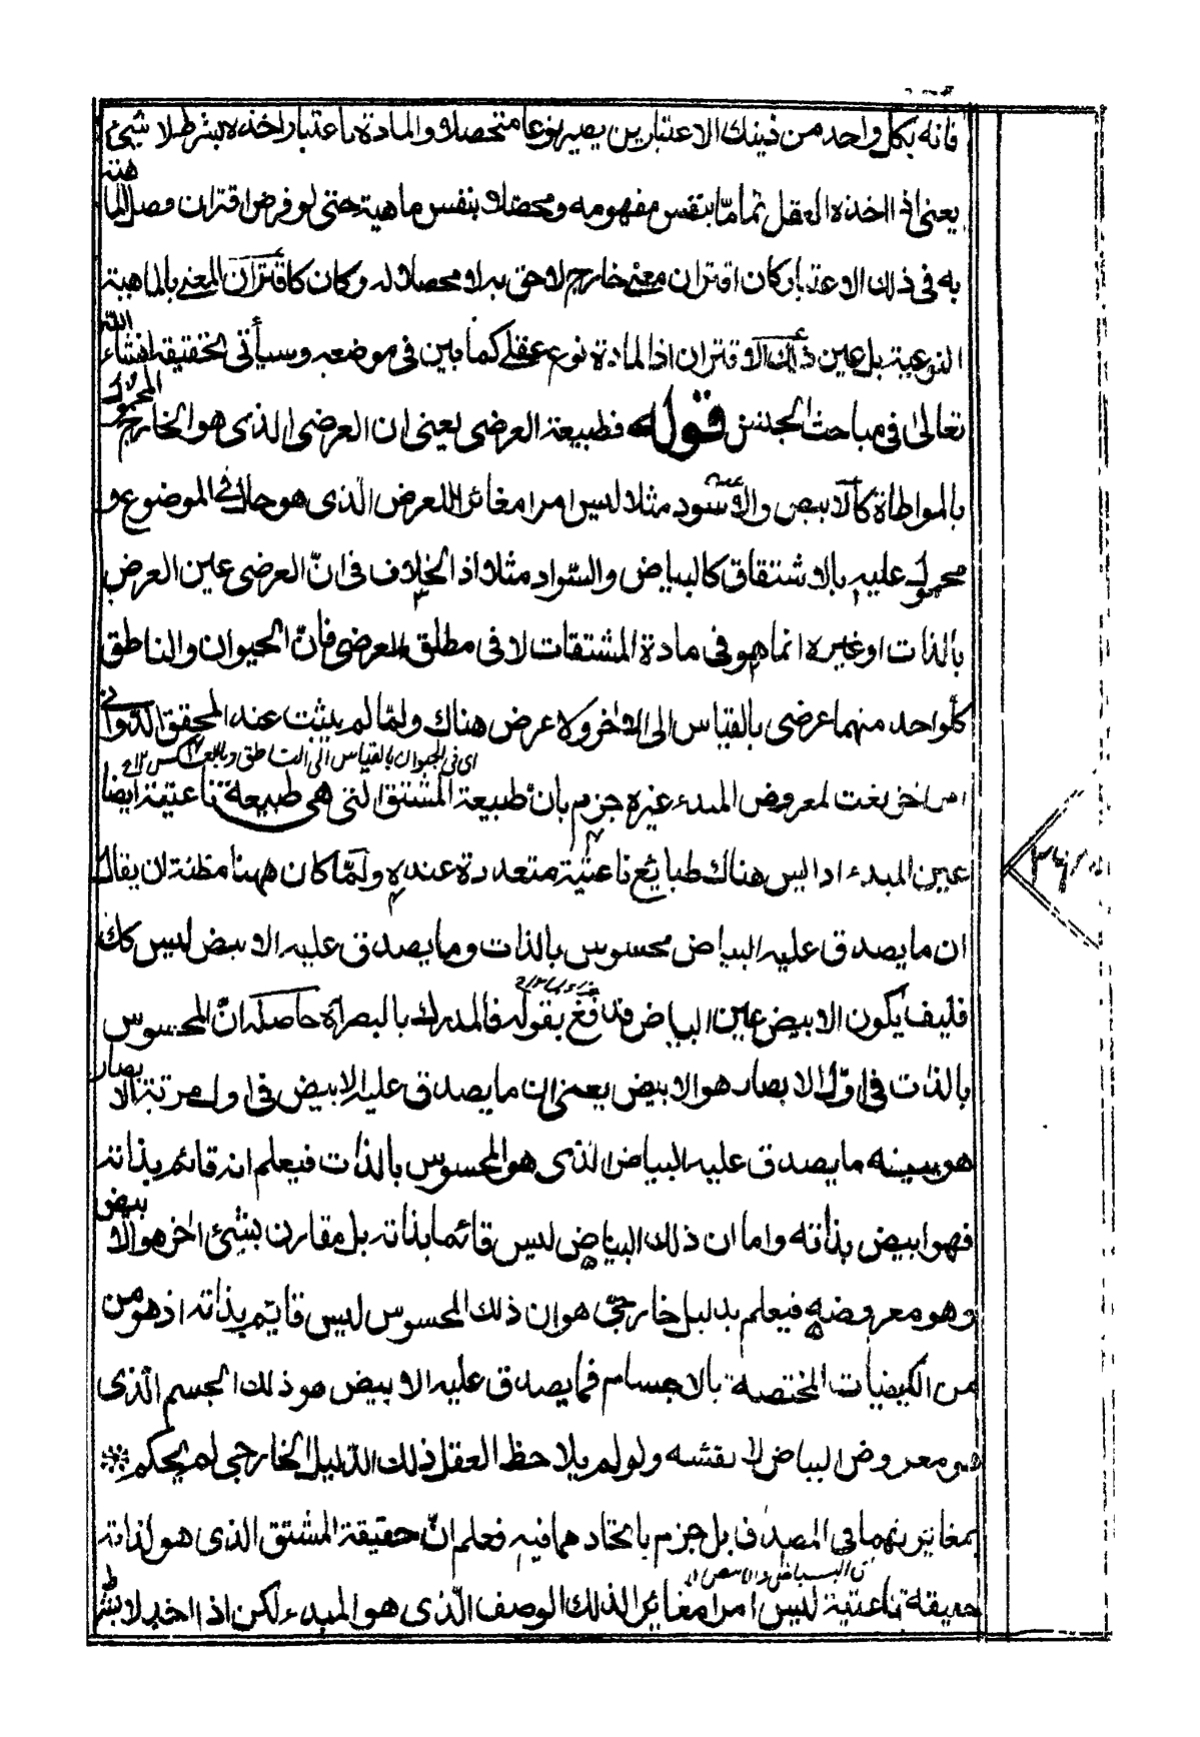 فانه بكل واحد من ذينك الاعتبارين يصير نوعا متحصلا والمادة باعتبار اخذه بشرط لا شيئ
يعنى اذا اخذه العقل تماما بنفس مفهومه ومحصلا بنفس ماهيته حتى لو فرض اقتران فصل الما
به فى ذلك الاعتبار كان اقتران معنى خارج لاحق به لا محصلا له وكان كاقتران المعنى بالماهية
النوعية بل عين ذلك الاقتران اذ المادة نوع عقلى كما بين فى موضعه وسيأتى تحقيقه انشاء الله
تعالى فى مباحث الجنس قوله فطبيعة العرضى يعنى ان العرضى الذى هو الخارج المحمول
بالمواطاة كالابيض والاسود مثلا ليس امرا مغائرا للعرض الذى هو حال فى الموضوع و
محمول عليه بالاشتقاق كالبياض والسّواد مثلا اذ الخلاف فى انّ العرضى عين العرض
بالذات او غيره انما هو فى مادة المشتقات لا فى مطلق العرضى فانّ الحيوان والناطق
كلّ واحد منهما عرضى بالقياس الى الاخر ولا عرض هناك ولمّا لم يثبت عند المحقق الدّوانى
اى فى الحيوان بالقياس الى الناطق وبالعكس ١٢
امر اخر نعت لمعروض المبدء غيره جزم بان طبيعة المشتق التى هى طبيعة ناعتية ايضا
عين المبدء اذ ليس هناك طبائع ناعتية متعددة عنده ولمّا كان ههنا مظنة ان يقال
ان ما يصدق عليه البياض محسوس بالذات وما يصدق عليه الابيض ليس كك
فكيف يكون الابيض عين البياض فدفع بقوله فالمدرك بالبصر آه حاصله انّ المحسوس
بالذات فى اوّل الابصار هو الابيض بمعنى ان ما يصدق عليه الابيض فى اول مرتبة الابصار
هو بعينه ما يصدق عليه البياض الذى هو المحسوس بالذات فيعلم انه قائم بذاته
فهو ابيض بذاته واما ان ذلك البياض ليس قائما بذاته بل مقارن بشئ اخر هو الابيض
وهو معروضه فيعلم بدليل خارجى هو ان ذلك المحسوس ليس قائم بذاته اذ هو من
من الكيفيات المختصة بالاجسام فما يصدق عليه الابيض هو ذلك الجسم الّذى
هو معروض البياض لا نفسه ولو لم يلاحظ العقل ذلك الدّليل الخارجى لم يحكم
بمغايرتهما فى المصداق بل جزم باتحادهما فيه فعلم انّ حقيقة المشتق الذى هو لذاته
حقيقة ناعتية ليس امرا مغائرا لذلك الوصف الّذى هو المبدء لكن اذا اخذ لا بشرط